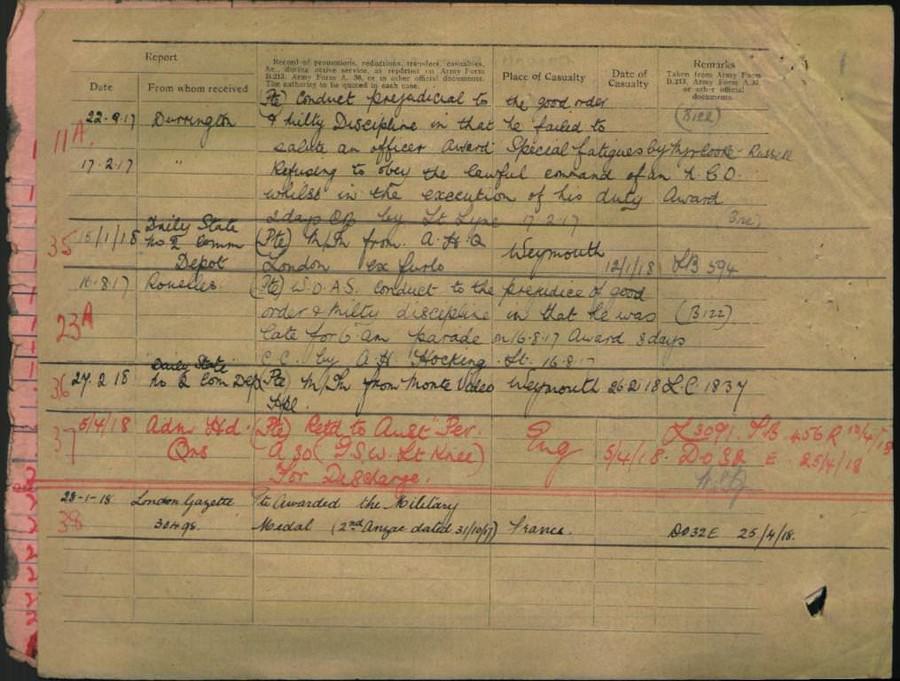 Report
Record of promotions, reductions, transfers, casualties,
&c., during active service, as reported on Army Form
B.213, Army Form A. 36, or in other official documents.
The authority to be quoted in each case.
Place of Casualty
Date of
Casualty
Remarks
Taken from Army Form
B.213, Army Form A.36,
or other official
documents.
Date
From whom received
(Pte) Conduct prejudicial to the good order
22.9.17 Durrington & Milty Discipline in that he failed to
11A
salute an officer Award Special fatigues by
17.2.17 " Refusing to obey the lawful command of an N.C.O.
whilst in the execution of his duty Award
2 days by Lt Lyne 17.2.17
35 15/1/18 Daily State
No 2 Comm
Depot
(Pte) M/In from A.H.Q Weymouth
London ex furlo 12/1/18 LB 594
16.8.17 Rouelles (Pte) W.O.A.S. Conduct to the prejudice of good
23A
order & Milty discipline in that he was (B122)
late for 6 am parade on 16.8.17 Award 3 days
C.C. by A H Hocking Lt. 16.8.17
36 27.2.18 Daily State
No 2 Com Dep (Pte) M/In from Monte Video Weymouth 26.2.18 L.C. 1837
37 5/4/18 Adm Hd. (Pte) Retd to Aust Per. Eng
Qrs A 30 (G.S.W. Lt Knee) 5/4/18. DO52 E 25/4/18
For Discharge.
28-1-18 London Gazette Awarded the Military
38 30498. Medal (2nd Anzac dated 31/10/17) France. DO32E 25/4/18.